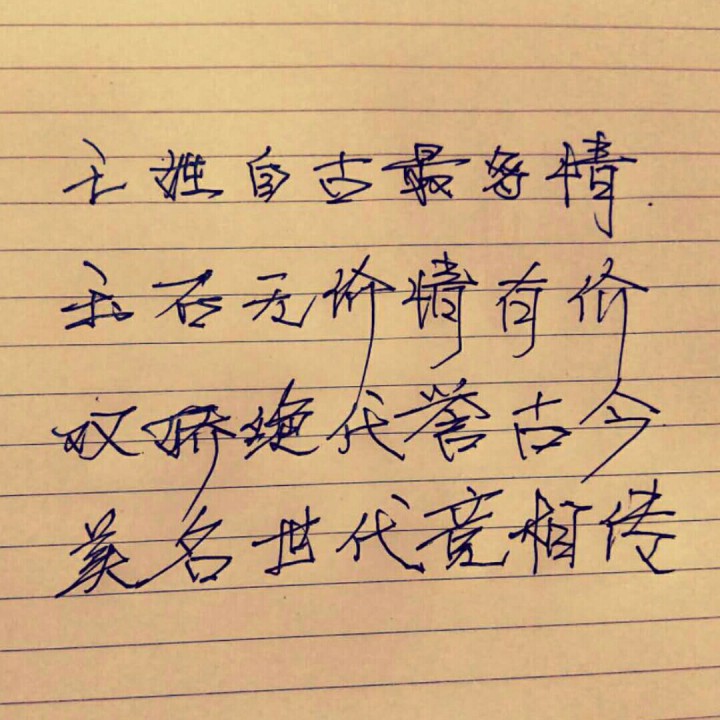 王姓自古最多情
玉石无价情有价
双骄绝代誉古今
美名世代竞相传